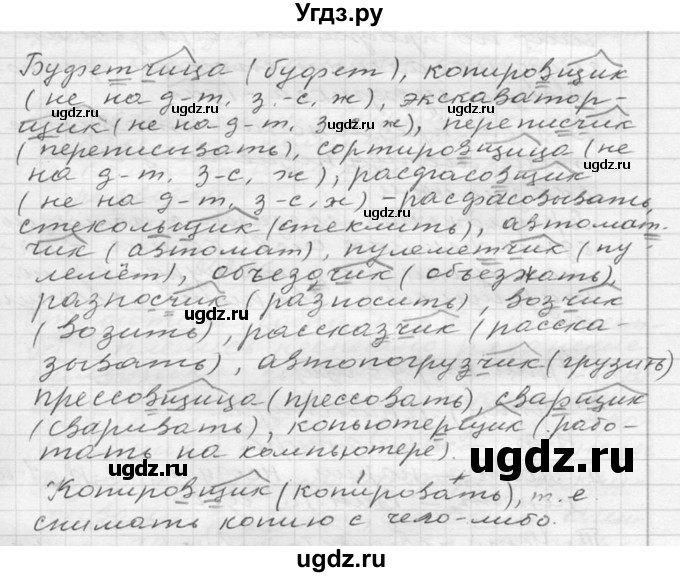 Угдз.ру
Буфетчица (буфет), копировщик
(не на д-т, з-с, ж), экскаватор-
щик (не на д-т, з-с, ж), переписчик
(переписывать), сортировщица (не
на д-т, з-с, ж), расфасовщик
(не на д-т, з-с, ж) - расфасовывать,
стекольщик (стеклить), автомат-
чик (автомат), пулеметчик (пу-
лемёт), объездчик (объезжать),
разносчик (разносить), возчик
(возить), рассказчик (расска-
зывать), автопогрузчик (грузить)
прессовщица (прессовать), сварщик
(сваривать), копьютерщик (рабо-
тать на компьютере).
Копировщик (копировать), т. е.
снимать копию с чего-либо.
ugdz.ru
ugdz.ru
ugdz.ru
ugdz.ru
ugdz.ru
ugdz.ru
ugdz.ru
ugdz.ru
ugdz.ru
ugdz.ru
ugdz.ru
ugdz.ru